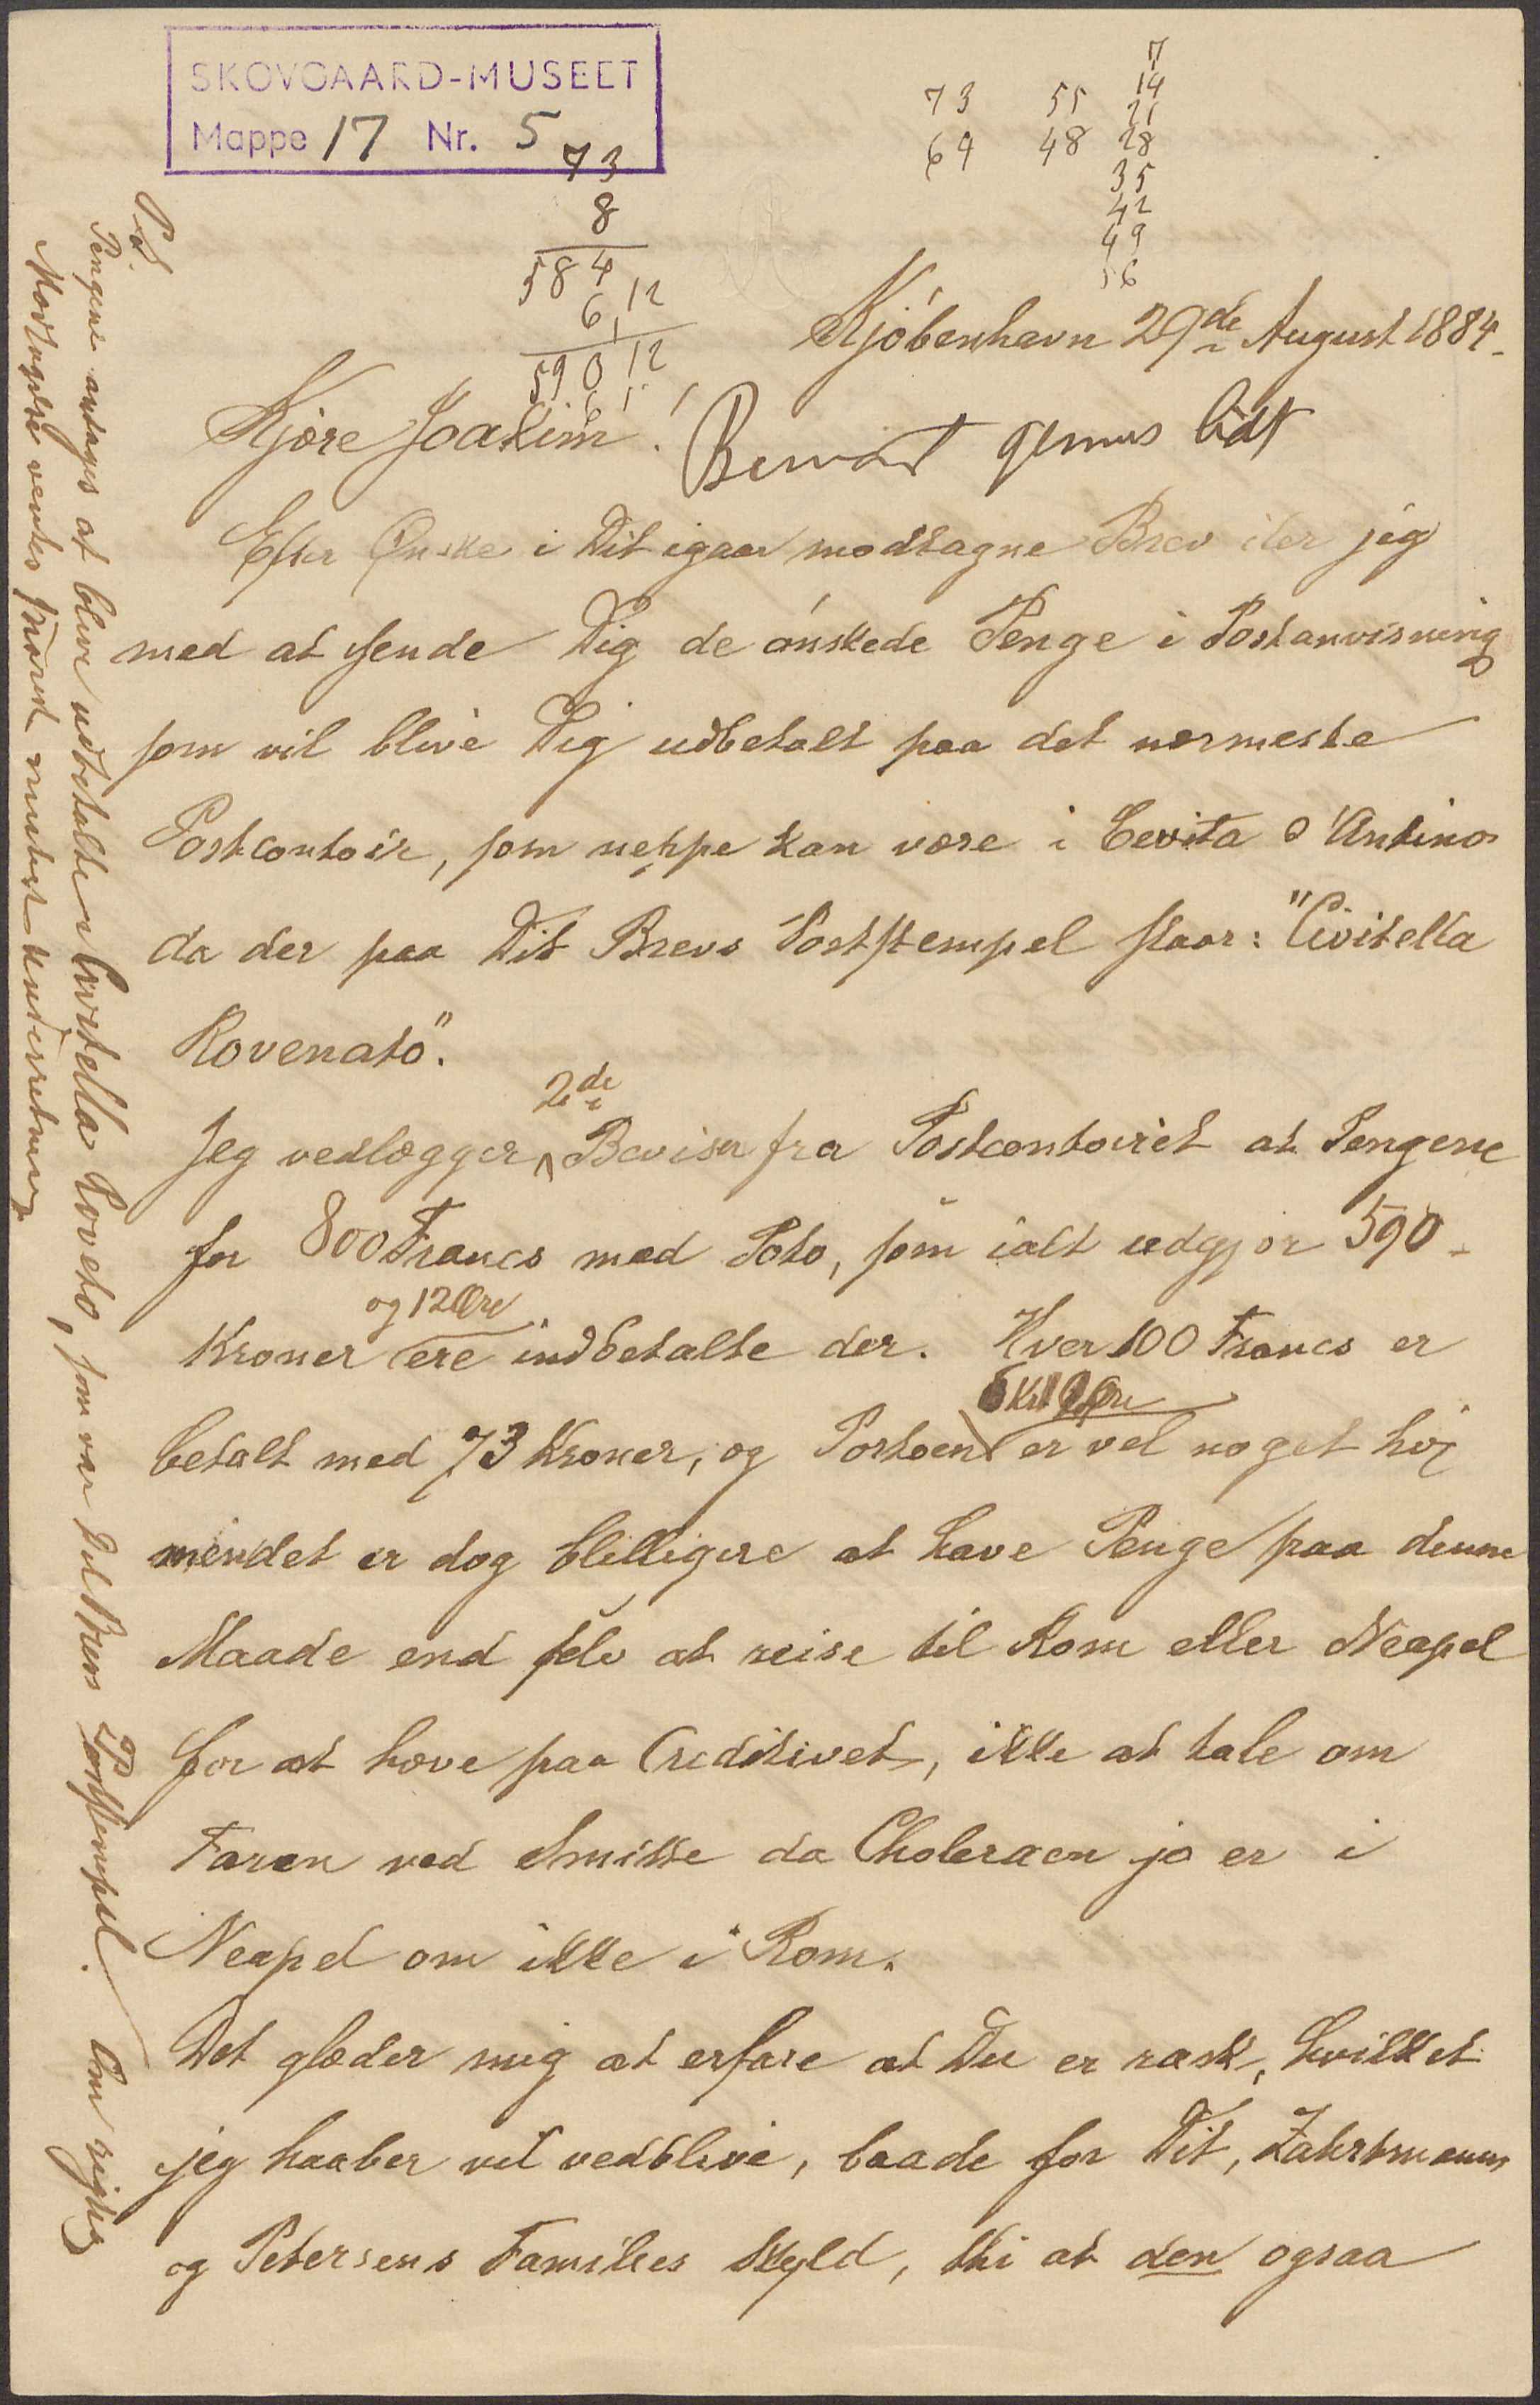 SKOVGAARD-MUSEET
Mappe 17 Nr. 5
73
8
584
6 12
590 12
6 1
73 55
64 48
7
14
21
28
35
42
49
56
Kjóbenhavn 29de August 1884.
Kjære Joakim!
gemus lidt
Efter Ønske i Dit igaar modtagne Brev iler jeg
med at sende Dig de ónskede Penge i Postanvisning
som vil blive Dig udbetalt paa det nærmeste
Postcontoir, som neppe kan være i Cevita d'Antino
da der paa Dit Brevs Poststempel staar: "Civitella
Rovenato".
Jeg vedlægger 2de Beviser fra Postcontoiret at Pengene
for 800 Francs med Poto, som ialt udgjør 590
Kroner og 12 Øre ere indbetalte der. Hver 100 Francs er
betalt med 73 Kroner, og Portoen 6 Kr 12 Øre er vel noget hói
men det er dog billigere at have Penge paa denne
Maade end selv at reise til Rom eller Neapel
for at hæve paa Creditivet, ikke at tale om
Faren ved Smitte da Choleraen jo er i
Neapel om ikke i Rom.
Det glæder mig at erfare at Du er rask, hvilket
jeg haaber vil vedblive, baade for Dit, Zahrtmanns
og Petersens Families Skyld, thi at den ogsaa
Ps.
Pengene antages at blive udbetalte i Civitella Roveto, som var Dit Brevs Poststempel. Om rigtig
Modtagelse ventes snarest mulig Underretning